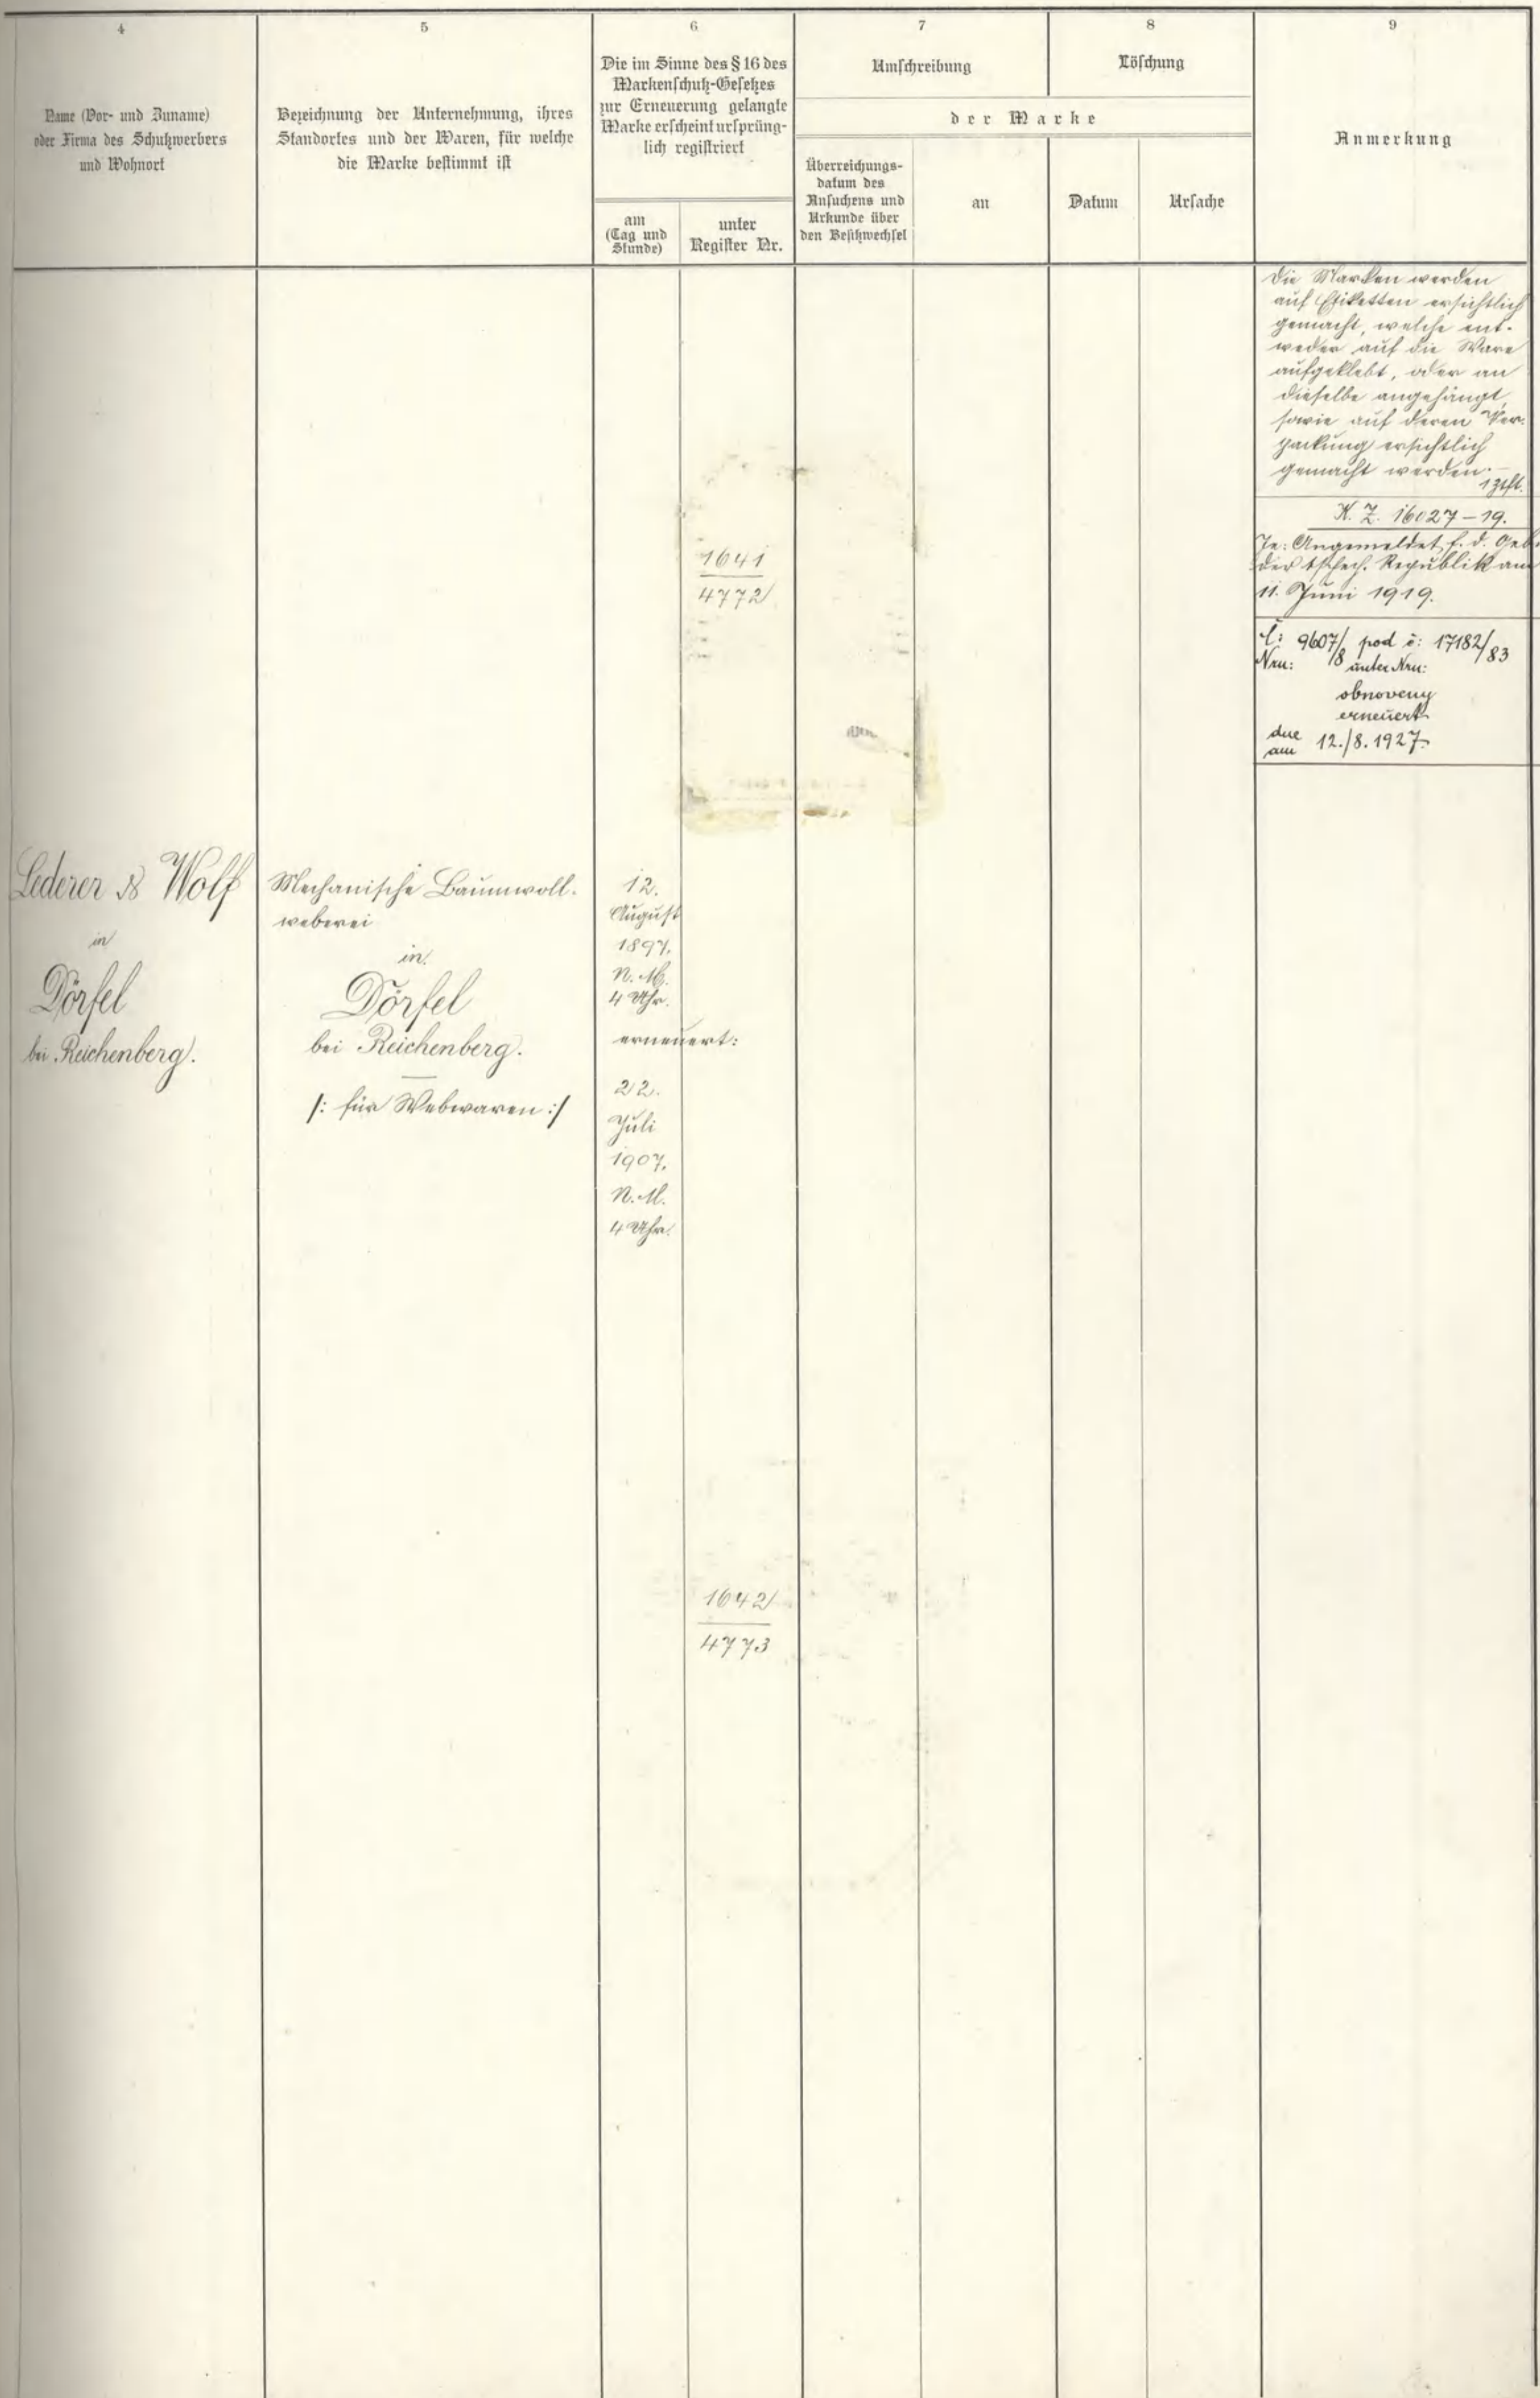 4
Name (Vor- und Zuname)
oder Firma des Schutzwerbers
und Wohnort
5
Bezeichnung der Unternehmung, ihres
Standortes und der Waren, für welche
die Marke bestimmt ist
6
Die im Sinne des § 16 des
Markenschutz-Gesetzes
zur Erneuerung gelangte
Marke erscheint ursprüng-
lich registriert
am
(Tag und
Stunde)
unter
Register Nr.
7
Umschreibung
8
Löschung
der Marke
Überreichungs-
datum des
Ansuchens und
Urkunde über
den Besitzwechsel
an
Datum
Ursache
9
Anmerkung
Lederer & Wolf
in
Dörfel
bei Reichenberg.
Mechanische Baumwoll-
weberei
in
Dörfel
bei Reichenberg.
/: für Webwaren :/
12.
August
1897.
N. M.
4 Uhr.
erneuert:
22.
Juli
1907.
N. M.
4 Uhr.
1641
4772
1642
4773
Die Marken werden
auf Etiketten ersichtlich
gemacht, welche ent-
weder auf die Ware
aufgeklebt, oder an
dieselbe angehängt,
sowie auf deren Ver-
packung ersichtlich
gemacht werden.
K. Z. 16027-19.
Angemeldet f. d. Geb.
der tschech. Republik am
11. Juni 1919.
č: 9607/8 pod č: 17182/83
Nru: unter Nru:
obnoveny
erneuert
dne
am 12./8. 1927